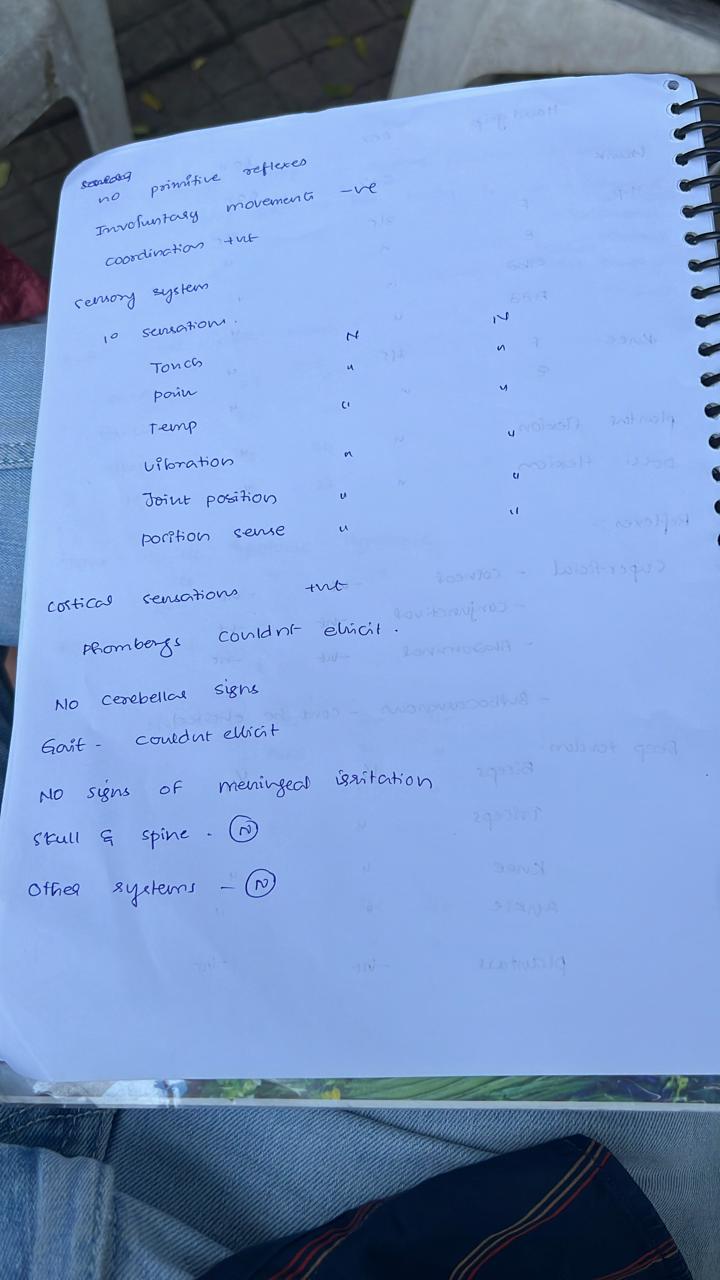 no primitive reflexes
Involuntary movements -ve
coordination +nt
sensory system
1° sensations.
N N
Touch " "
pain " "
Temp
vibration " "
Joint position " "
position sense " "
cortical sensations +nt
Rhombergs couldnt elicit.
No cerebellar signs
Gait - couldnt ellicit
No signs of meningeal irritation
skull & spine - N
Other systems - N